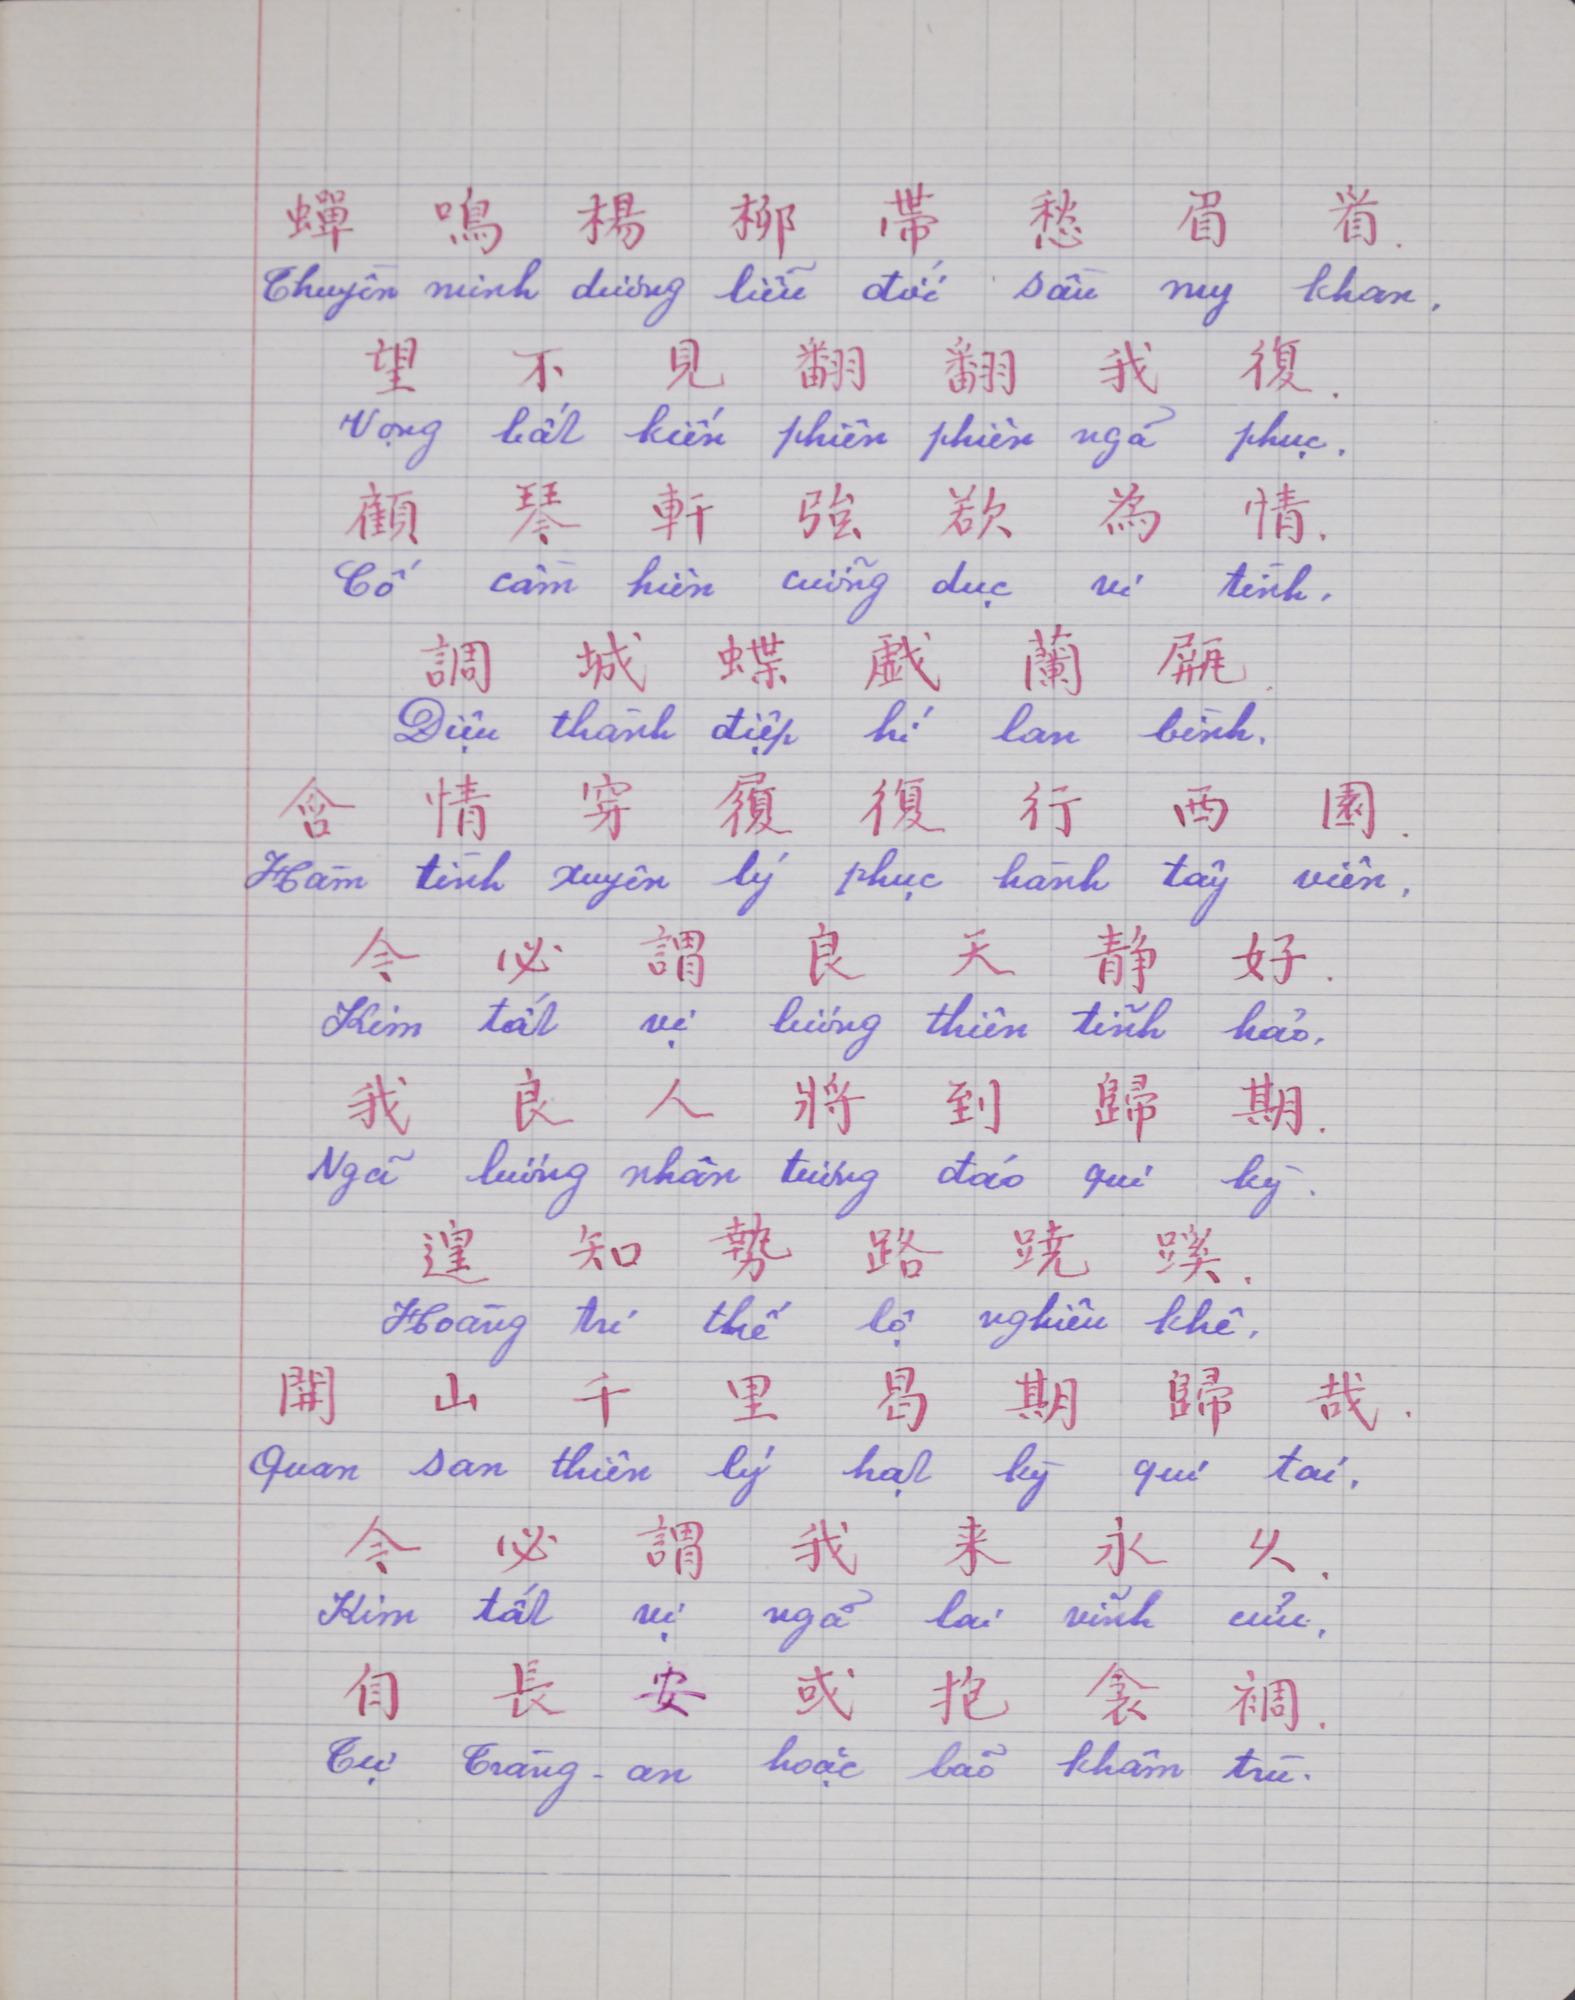 蟬鳴楊柳帶愁眉看.
Thuyền minh dương liễu đới sầu my khan.
望不見翻翻我復.
Vọng bất kiến phiên phiên ngã phục.
顧琴軒強欲為情.
Cố cầm hiên cưỡng dục vi tình.
調城蝶戯蘭屏.
Điệu thành điệp hí lan bình.
含情穿履復行西園.
Hàm tình xuyên lý phục hành tây viên.
今必謂良天静好.
Kim tất vị lương thiên tĩnh hảo.
我良人將到歸期.
Ngã lương nhân tương đáo qui kỳ.
遑知勢路蹺蹊.
Hoàng tri thế lộ nghiêu khê.
開山千里曷期歸哉.
Quan san thiên lý hạt kỳ qui tai.
今必謂我来永久.
Kim tất vị ngã lai vĩnh cửu.
自長安或抱衾裯.
Tự Tràng-an hoặc bão khâm trù.